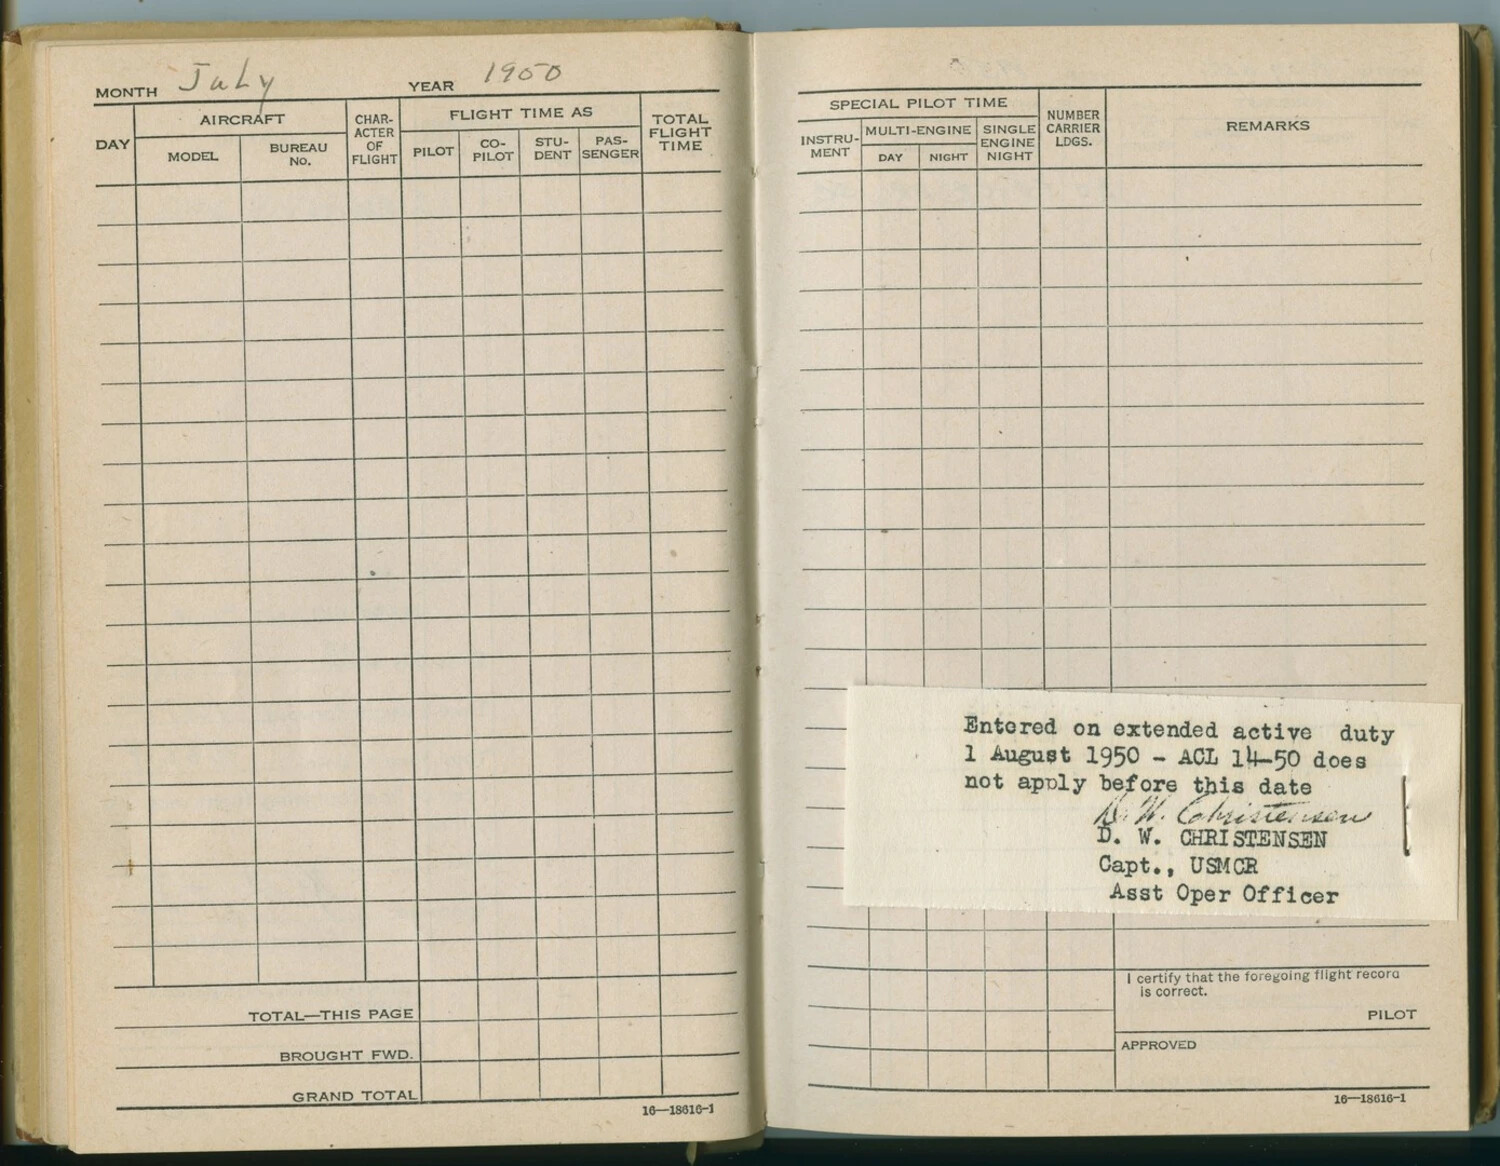 MONTH July YEAR 1950
DAY
AIRCRAFT
MODEL
BUREAU
No.
CHAR-
ACTER
OF
FLIGHT
FLIGHT TIME AS
PILOT
CO-
PILOT
STU-
DENT
PAS-
SENGER
TOTAL
FLIGHT
TIME
TOTAL—THIS PAGE
BROUGHT FWD.
GRAND TOTAL
16—18616-1
SPECIAL PILOT TIME
INSTRU-
MENT
MULTI-ENGINE
DAY
NIGHT
SINGLE
ENGINE
NIGHT
NUMBER
CARRIER
LDGS.
REMARKS
Entered on extended active duty
1 August 1950 - ACL 14-50 does
not apply before this date
D. W. Christensen
D. W. CHRISTENSEN
Capt., USMCR
Asst Oper Officer
I certify that the foregoing flight record
is correct.
PILOT
APPROVED
16—18616-1